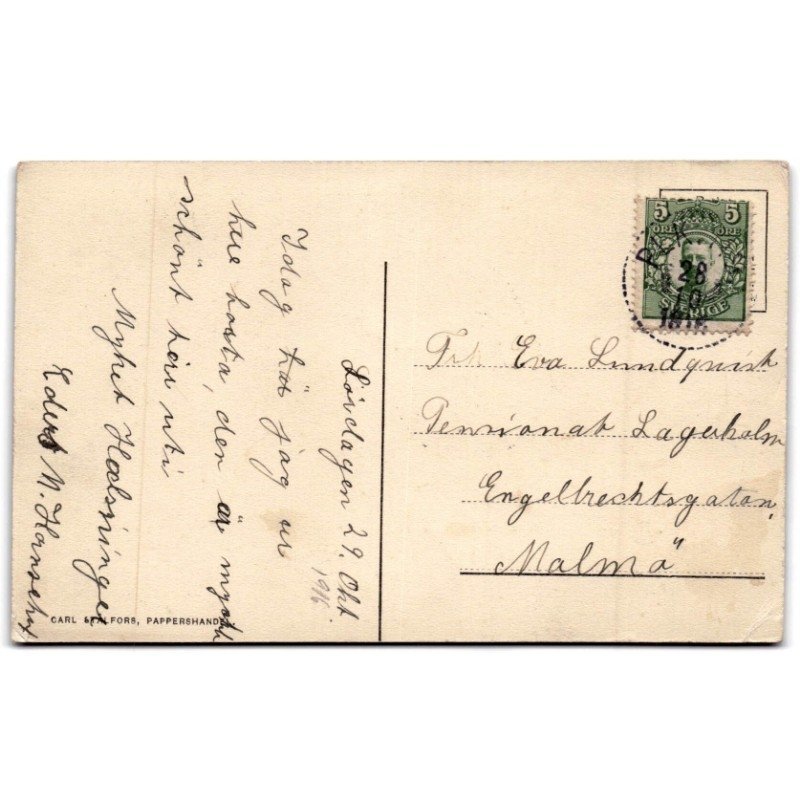 Lördagen 29. Okt
1916
Idag här jag ur
hute hosta, den är myckt
schönt heir uti
Myhet Halsninger
Edert N. Hanse
5 5
ÖRE ÖRE
SVERIGE
28
10
Frk Eva Lundquist
Pensionat Lagerholm
Engelbrechtsgatan,
Malmö
CARL PAPPERSHANDEL